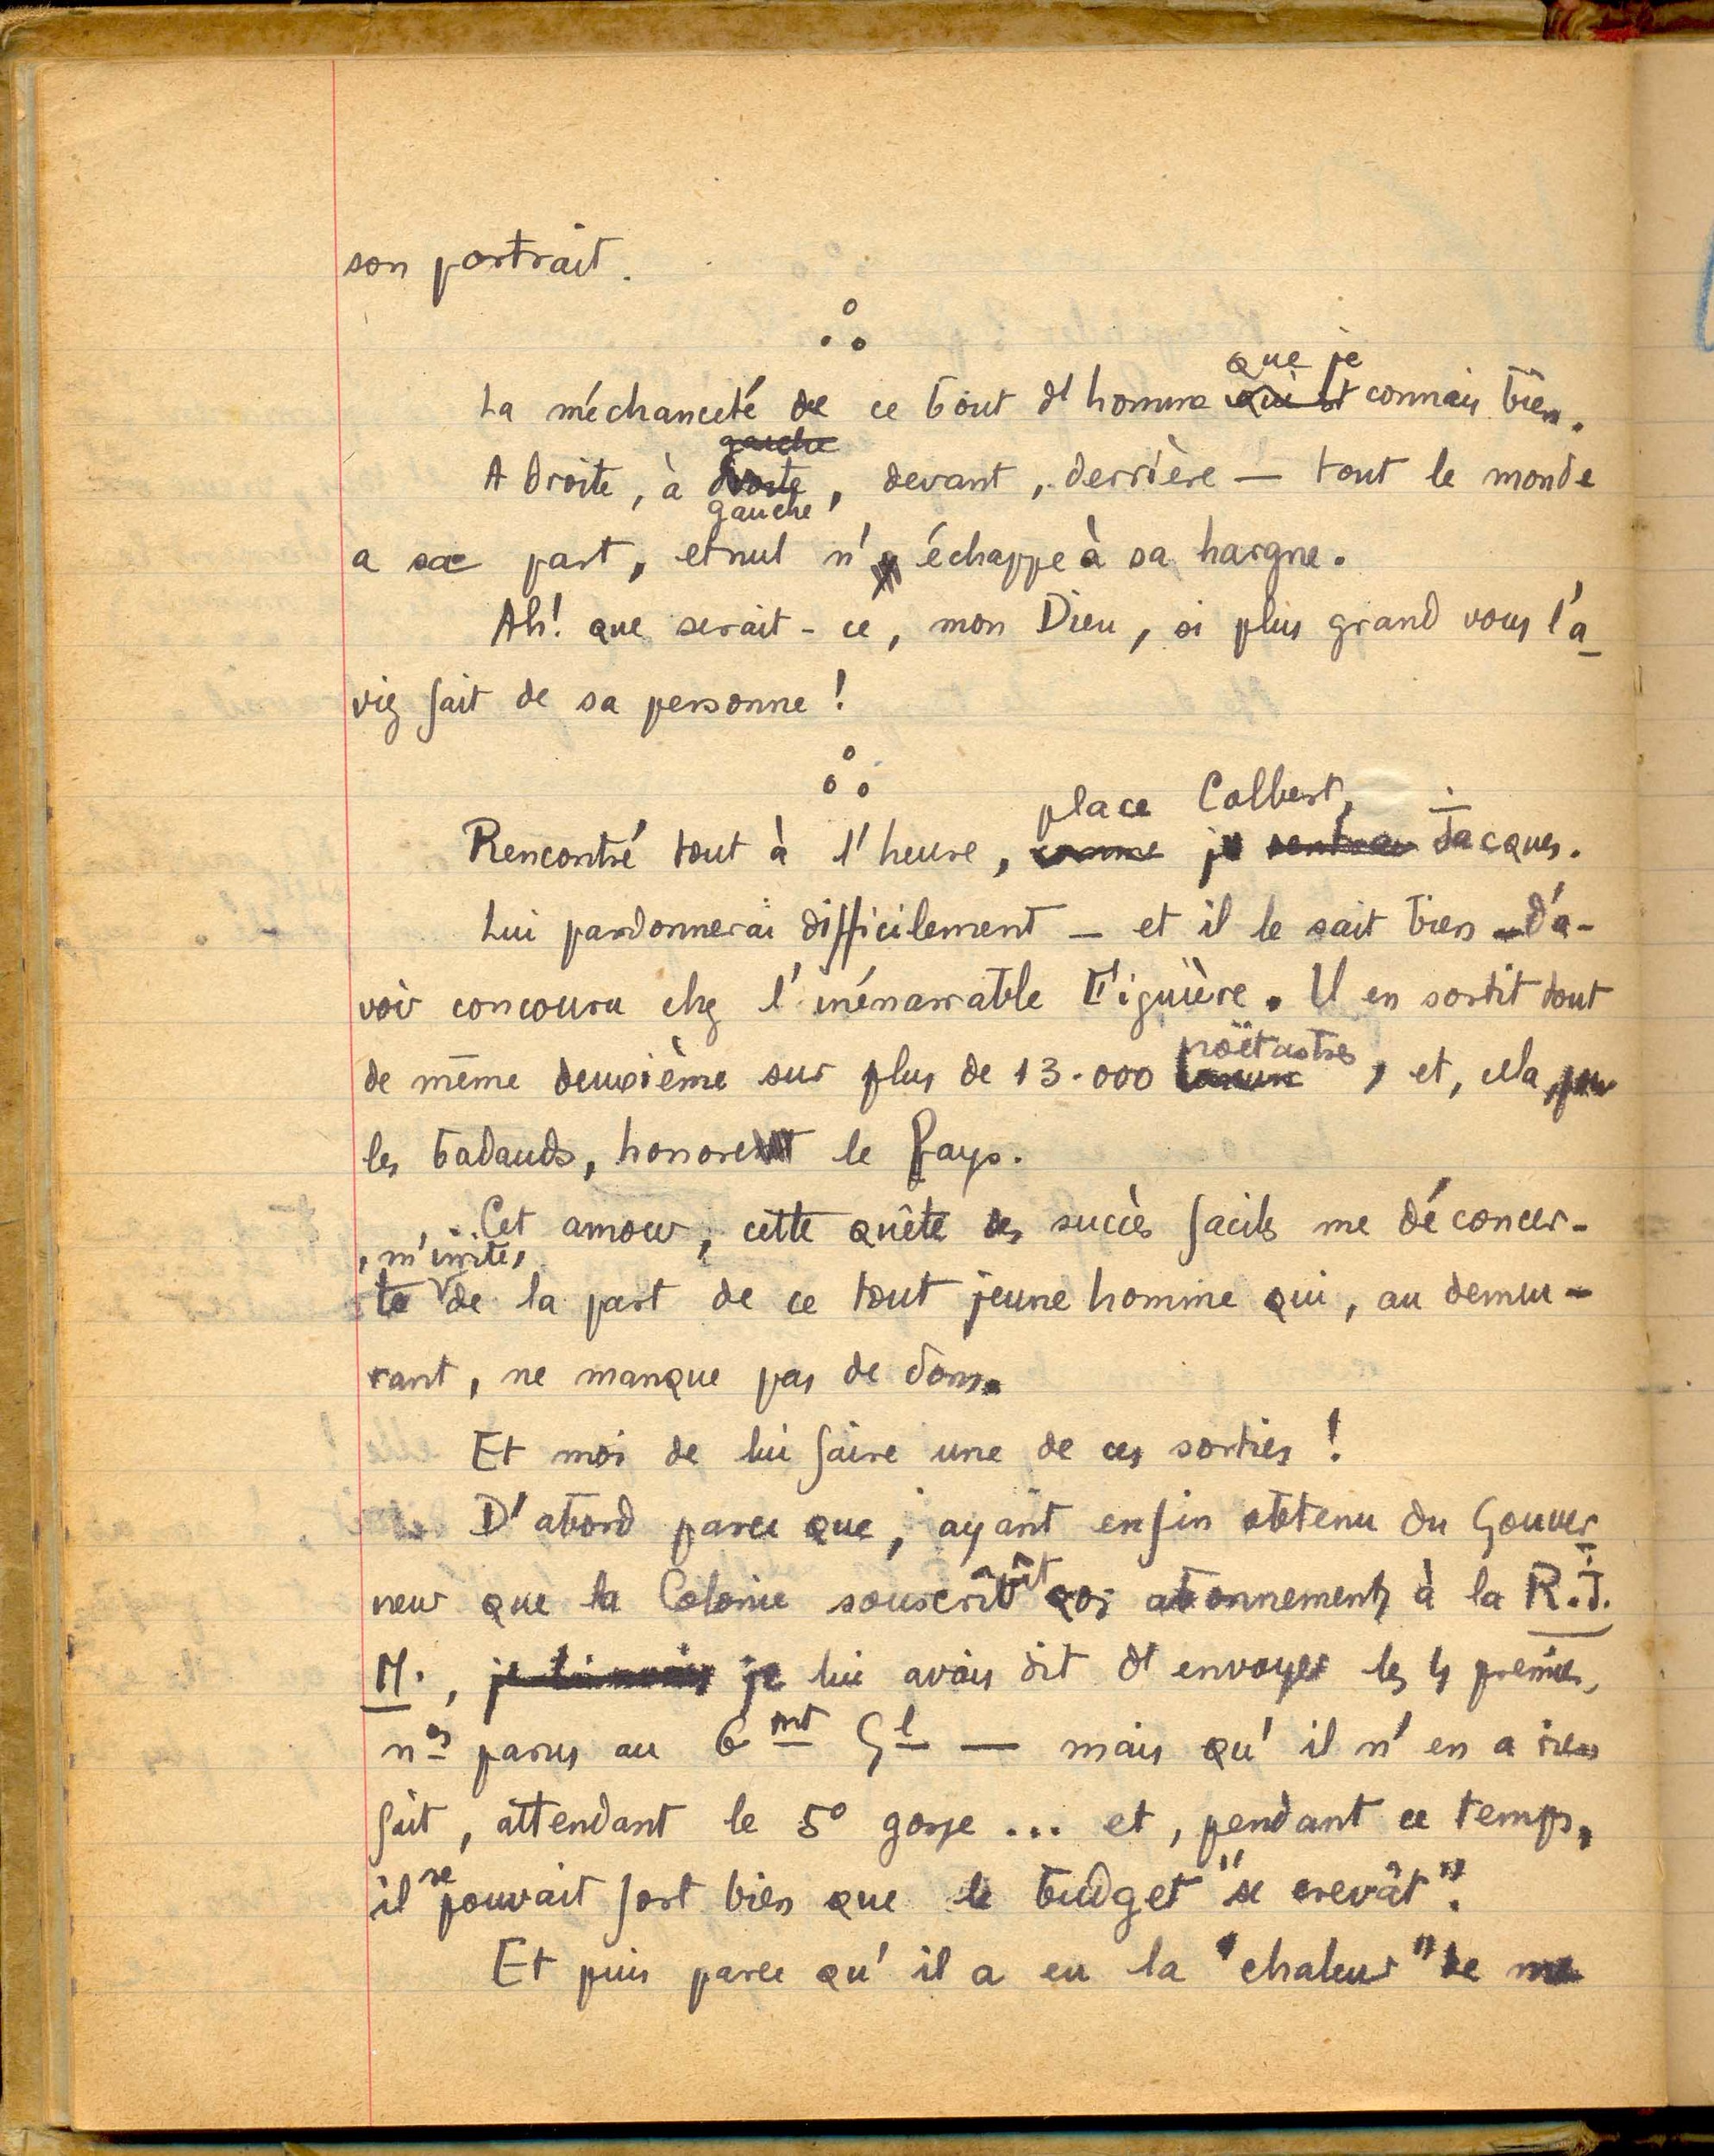 son portrait.
La méchanceté de ce bout d'homme que je connais bien.
A droite, à gauche, devant, derrière — tout le monde
a sa part, et nul n'échappe à sa hargne.
Ah! que serait-ce, mon Dieu, si plus grand vous l'a
viez fait de sa personne!
Rencontré tout à l'heure, place Colbert, Jacques.
Lui pardonnerai difficilement — et il le sait bien — d'a-
voir concouru chez l'inénarrable Figuière. Il en sortit tout
de même deuxième sur plus de 13.000 poëtastres, et, cela, pour
les badauds, honore le Pays.
Cet amour, cette quête des succès faciles me déconcer-
te, m'irrite, de la part de ce tout jeune homme qui, au demeu-
rant, ne manque pas de dons.
Et moi de lui faire une de ces sorties!
D'abord parce que, ayant enfin obtenu du Gouver
neur que la Colonie souscrivît abonnements à la R.J.
M., je lui avais dit d'envoyer les 4 premiers
nos parus au Gmt Gl — mais qu'il n'en a rien
fait, attendant le 5o gosse... et, pendant ce temps,
il se pouvait fort bien que le budget "se crevât".
Et puis parce qu'il a eu la "chaleur" de me